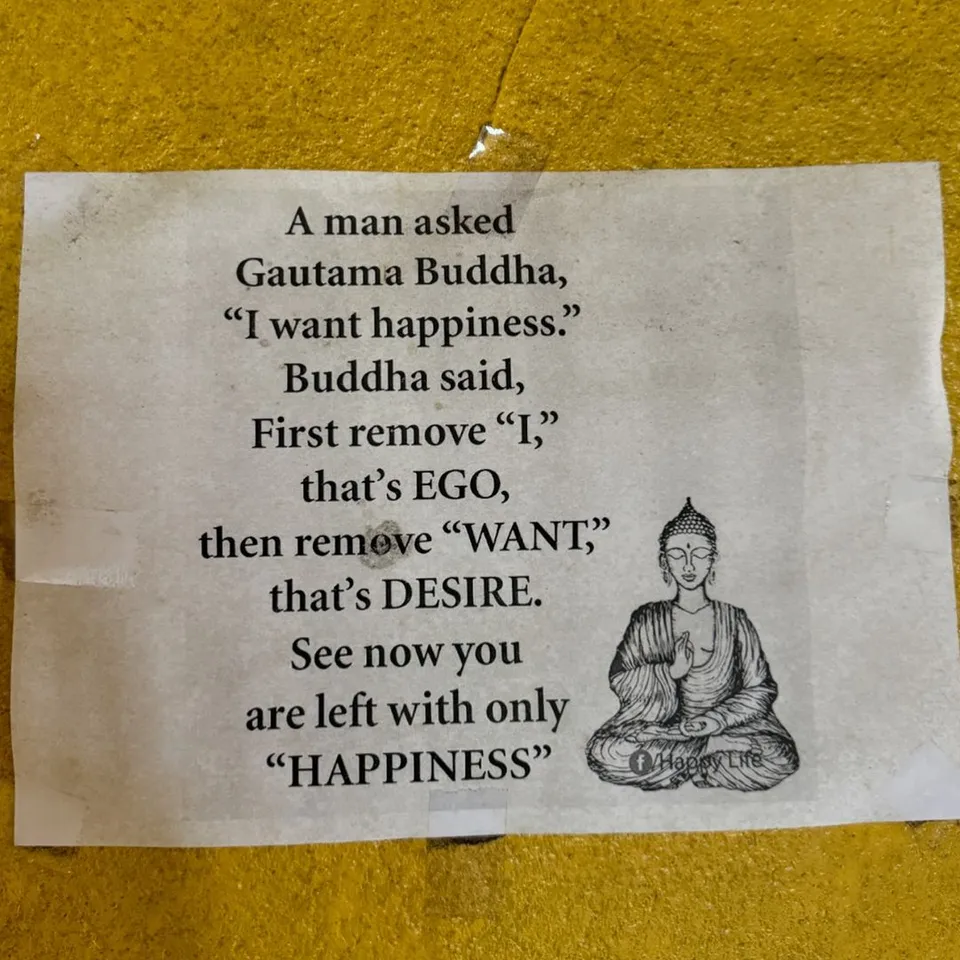 A man asked
Gautama Buddha,
“I want happiness.”
Buddha said,
First remove “I,”
that’s EGO,
then remove “WANT,”
that’s DESIRE.
See now you
are left with only
“HAPPINESS”
f/Happy Life